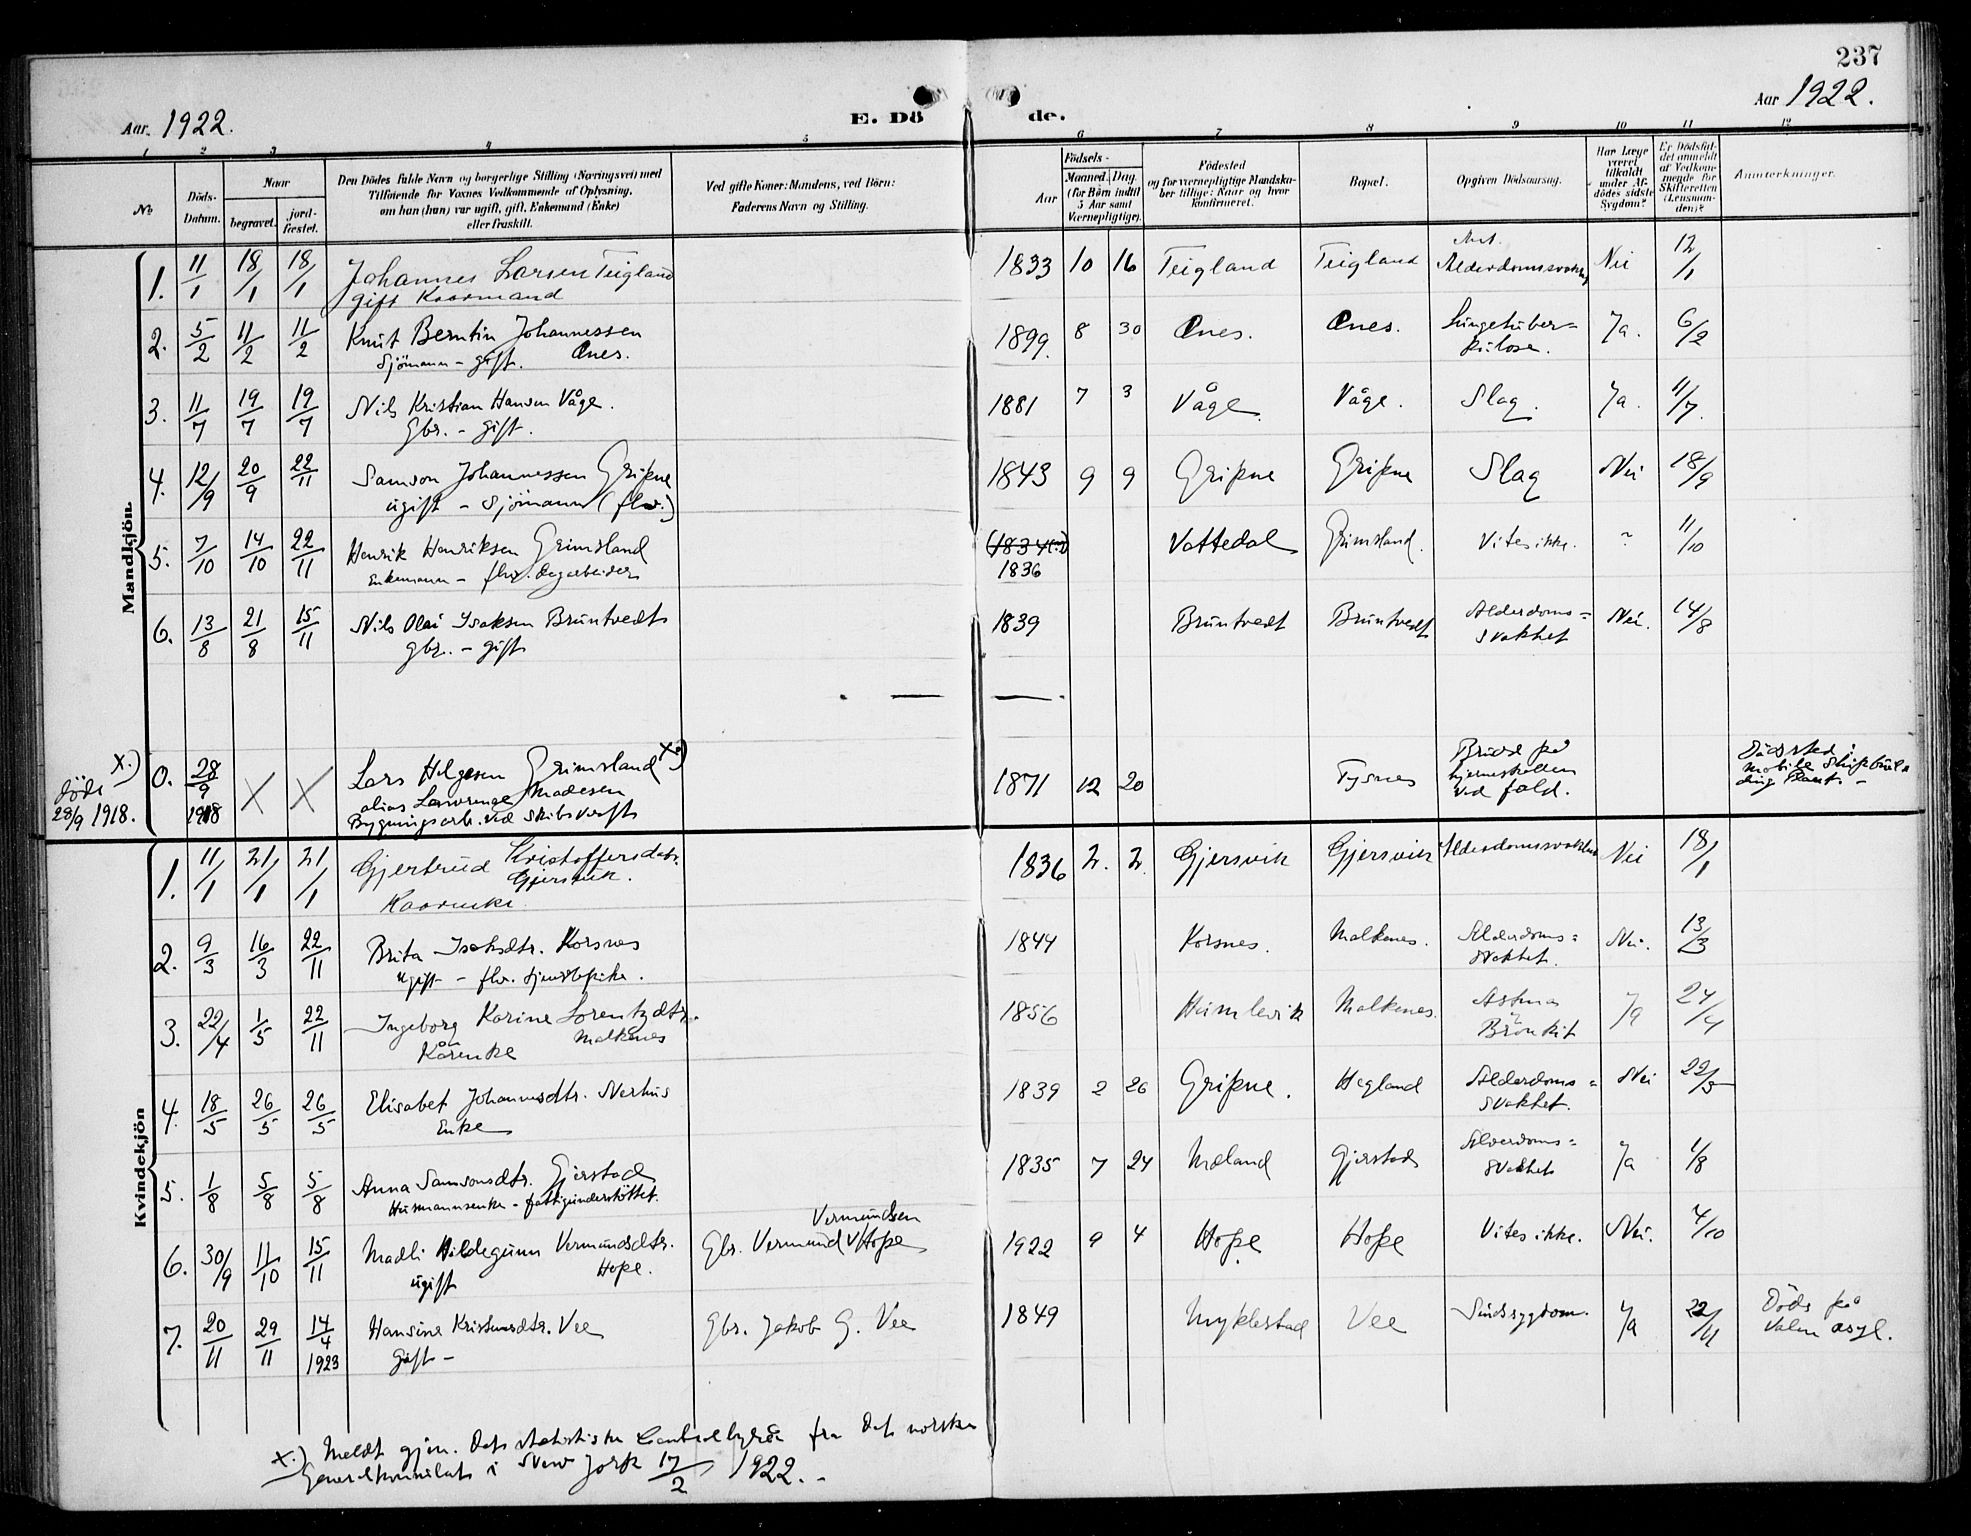 237
Aar. 1922.
E. Dö
de.
Aar 1922.
1 2 3 4 5 6 7 8 9 10 11 12
No
Döds-Datum.
Naar
begravet.
jord-fæstet.
Den Dödes fulde Navn og borgerlige Stilling (Næringsvei) med
Tilföiende for Voxnes Vedkommende af Oplysning,
om han (hun) var ugift, gift, Enkemand (Enke)
eller fraskilt.
Ved gifte Koner: Mandens, ved Börn:
Faderens Navn og Stilling.
Födsels-
Aar
Maaned. Dag.
(for Börn indtil
5 Aar samt
Værnepligtige).
Födested
og for værnepligtige Mandska-
ber tillige: Naar og hvor
konfirmeret.
Bopæl.
Opgiven Dödsaarsag.
Har Læge
været
tilkaldt
under Af-
dödes sidste
Sygdom?
Er Dödsfal-
det anmeldt
af Vedkom-
mende for
Skifteretten
(Lensman-
den)?
Anmærkninger.
Mandkjön.
1. 11/1 18/1 18/1 Johannes Larsen Teigland 1833 10 16 Teigland Teigland Alderdomssvakhet Nei 12/1
gift Kaarmand
2. 5/2 11/2 11/2 Knut Berntin Johannessen 1899. 8 30 Ænes. Ænes. Lungetuber= Ja. 6/2
Sjömann - gift. Ænes. kulose.
3. 11/7 19/7 19/7 Nils Kristian Hansen Våge. 1881 7 3 Våge. Våge. Slag. Ja. 11/7.
Gbr. - gift.
4. 12/9 20/9 22/11 Samson Johannessen Gripne 1843 9 9 Gripne Gripne Slag Nei 18/9
ugift - Sjömann (fhv.)
5. 7/10 14/10 22/11 Henrik Henriksen Grimsland Vattedal Grimsland. Vites ikke. ? 11/10
Enkemann - fhv. dagarbeider 1836
6. 13/8 21/8 15/11 Nils Olai Isaksen Bruntvedt 1839 Bruntvedt Bruntvedt Alderdoms= Nei. 14/8
gbr. - gift svakhet
x.) döde 28/9 1918.
0. 28/9 1918 X X Lars Helgesen Grimsland x.) 1871 12 20 Tysnes Brudd på
alias Lawrence Madesen hjerneskallen
Bygningsarb. ved skibsverft ved fald.
Dödssted:
Mobile Shipbuil=
ding Plant. -
Kvindekjön
1. 11/1 21/1 21/1 Gjertrud Kristoffersdatr. 1836 2. 2. Gjersvik Gjersvik Alderdomssvakhet Nei 18/1
Gjersvik.
Kaarenke
2. 9/3 16/3 22/11 Brita Isaksdtr. Korsnes 1844 Korsnes. Malkenes. Alderdoms= Nei. 13/3
ugift - fhv. tjenestepike. svakhet.
3. 22/4 1/5 22/11 Ingeborg Karine Lorentzdtr. 1856 Heimlevik Malkenes. Astma Ja 24/4
Kårenke Malkenes Bronkit
4. 18/5 26/5 26/5 Elisabet Johannesdtr. Nerhus 1839 2 26 Gripne. Hegland Alderdoms= Nei 22/5
Enke svakhet.
5. 1/8 5/8 5/8 Anna Samsonsdtr. Gjerstad 1835 7 24 Mæland Gjerstad Alderdoms= Ja 1/8
Husmannsenke - fattigunderstöttet. svakhet
6. 30/9 11/10 15/11 Madli Hildegunn Vermundsdtr. Gbr. Vermund Vermundsen Hope 1922 9 4 Hope Hope Vites ikke. Nei. 4/10
ugift Hope.
7. 20/11 29/11 14/4 1923 Hansine Kristensdtr. Vee Gbr. Jakob G. Vee 1849 Myklestad Vee Sindssygdom. Ja 22/11 Döde på
Gift - Valen asyl.
x.) Meldt gjen. Det statistiske Centralbyrå fra det norske
Generalkonsulat i New York 17/2 1922. -